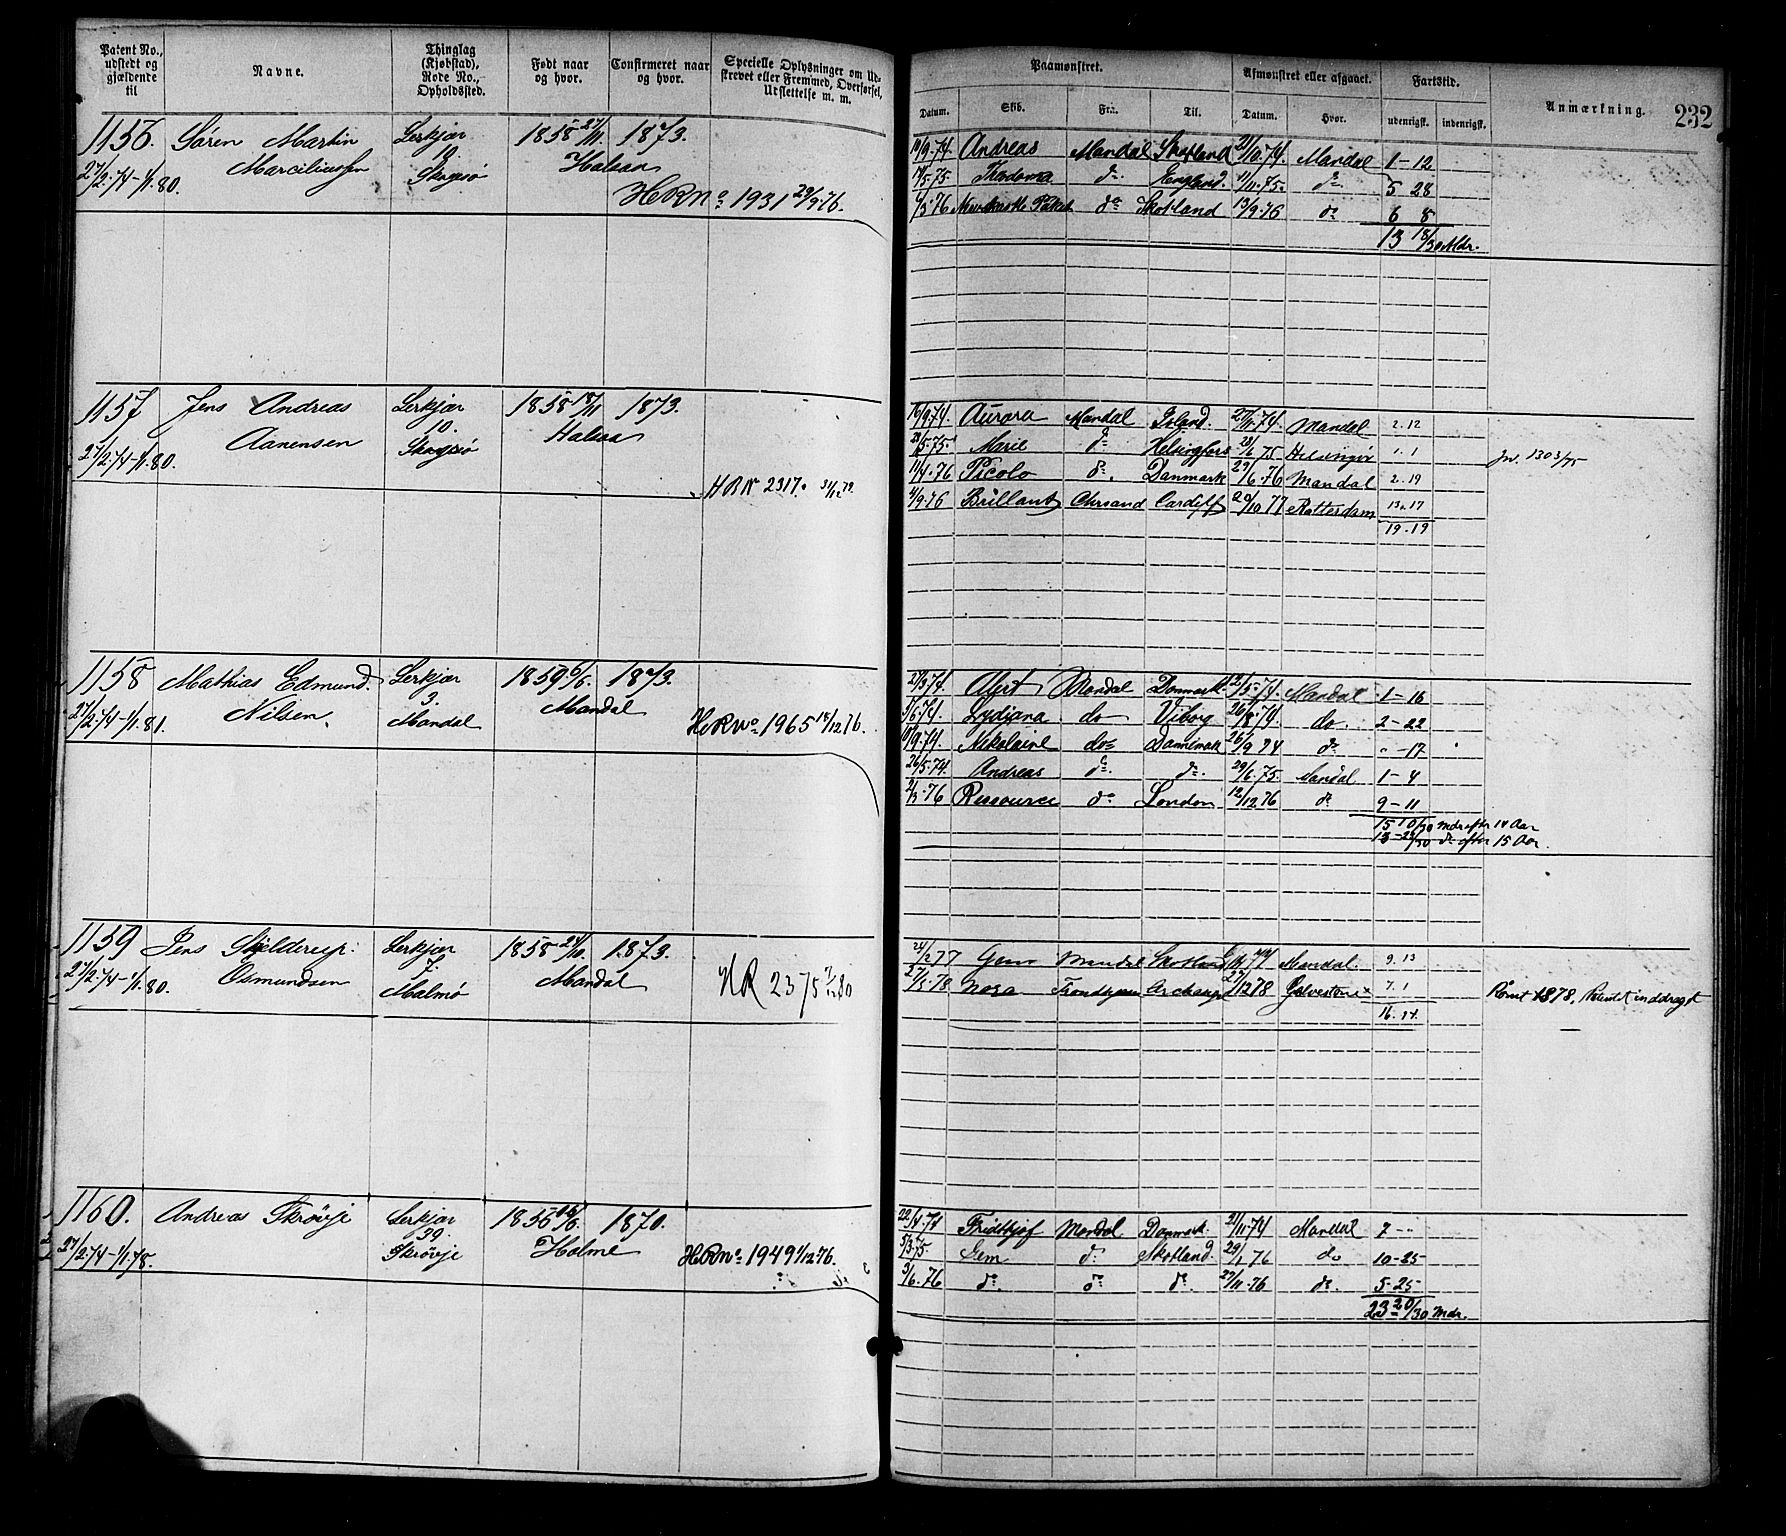 Patent No., udstedt og gjældende til
Navne.
Thinglag (Kjøbstad), Rode No., Opholdssted.
Født naar og hvor.
Confirmeret naar og hvor.
Specielle Oplysninger om Udskrevet eller Fremmed, Overførsel, Udslettelse m. m.
Paamønstret.
Afmønstret eller afgaaet.
Fartstid.
Anmærkning.
232
Datum. Skib. Fra. Til. Datum. Hvor. udenrigsk. indenrigsk.
1156. Søren Martin Lerkjær 1858 27/11 1873.
27/2.74-1/1.80. Marciliussen 10. Halsaa
Skogsø
HRNo 1931 29/9.76.
19/9.74 Andreas Mandal Skotland 21/10.74. Mandal 1-12
17/5.75 do England. 11/11.75. do 5 28
6/3.76 do Skotland 13/9.76 do 6 8
13 18/30 Mdr.
1157 Jens Andreas Lerkjær 1858 18/11 1873.
27/2.74-1/1.80. Aanensen 10. Halsaa
Skogsø
HRN 2317.
16/9.74. Aurora Mandal Island. 27/11.74. Mandal 2.12
28/5.75 Marie do Helsingfors 28/6 75 Helsingør 1.1 Jn. 1303/75
11/4.76 Picolo do. Danmark 29/6.76 Mandal 2.19
4/9.76 Brillant Chrsand Cardiff 20/10 77 Rotterdam 13.17
19.19
1158 Mathias Edmund Lerkjær 1859 6/5. 1873.
27/2.74-1/1.81. Nilsen. 3. Mandal
Mandal
HRNo 1965 18/12 76.
27/3 74. Mandal Danmark. 21/5.74. Mandal 1-16
5/6.74. Lydiana do Viborg 26/8.74. do. 2-22
9.74. Nikoline do Danmark 26/9 74 do " -17
26/5.74. Andreas do do. 29/6.75. Mandal 1-4
2/3.76 Ressource do London 12/12 76 do 9-11
15 10/30 Mdr efter 14 Aar
13-23/30 do efter 15 Aar.
1159 Jens Lerkjær 1858 24/10. 1873.
27/2.74-1/1.80. Osmundsen 7. Mandal
Malmø
HR 2375
24/2 77 Mandal Skotland Mandal. 9.13
27/5.78 Nora Trondhjem Archangel 27/12 78 Galvestone 7.1 Rømt 1878. Patentet inddraget
16.14.
1160. Andreas Skrøvje Lerkjær 1856 16/6. 1870.
27/2.74-1/1.78. 39. Holme
Skrøvje
HRNo 1949 1/12.76.
22/4.74 Fridthjof Mandal Danmark. 21/11.74 Mandal 7 -"
5/3.75. Gem do Skotland. 29/1 76 do 10-25
3/6.76 do. do do. 27/11.76 do. 5-25
23 20/30 Mdr.